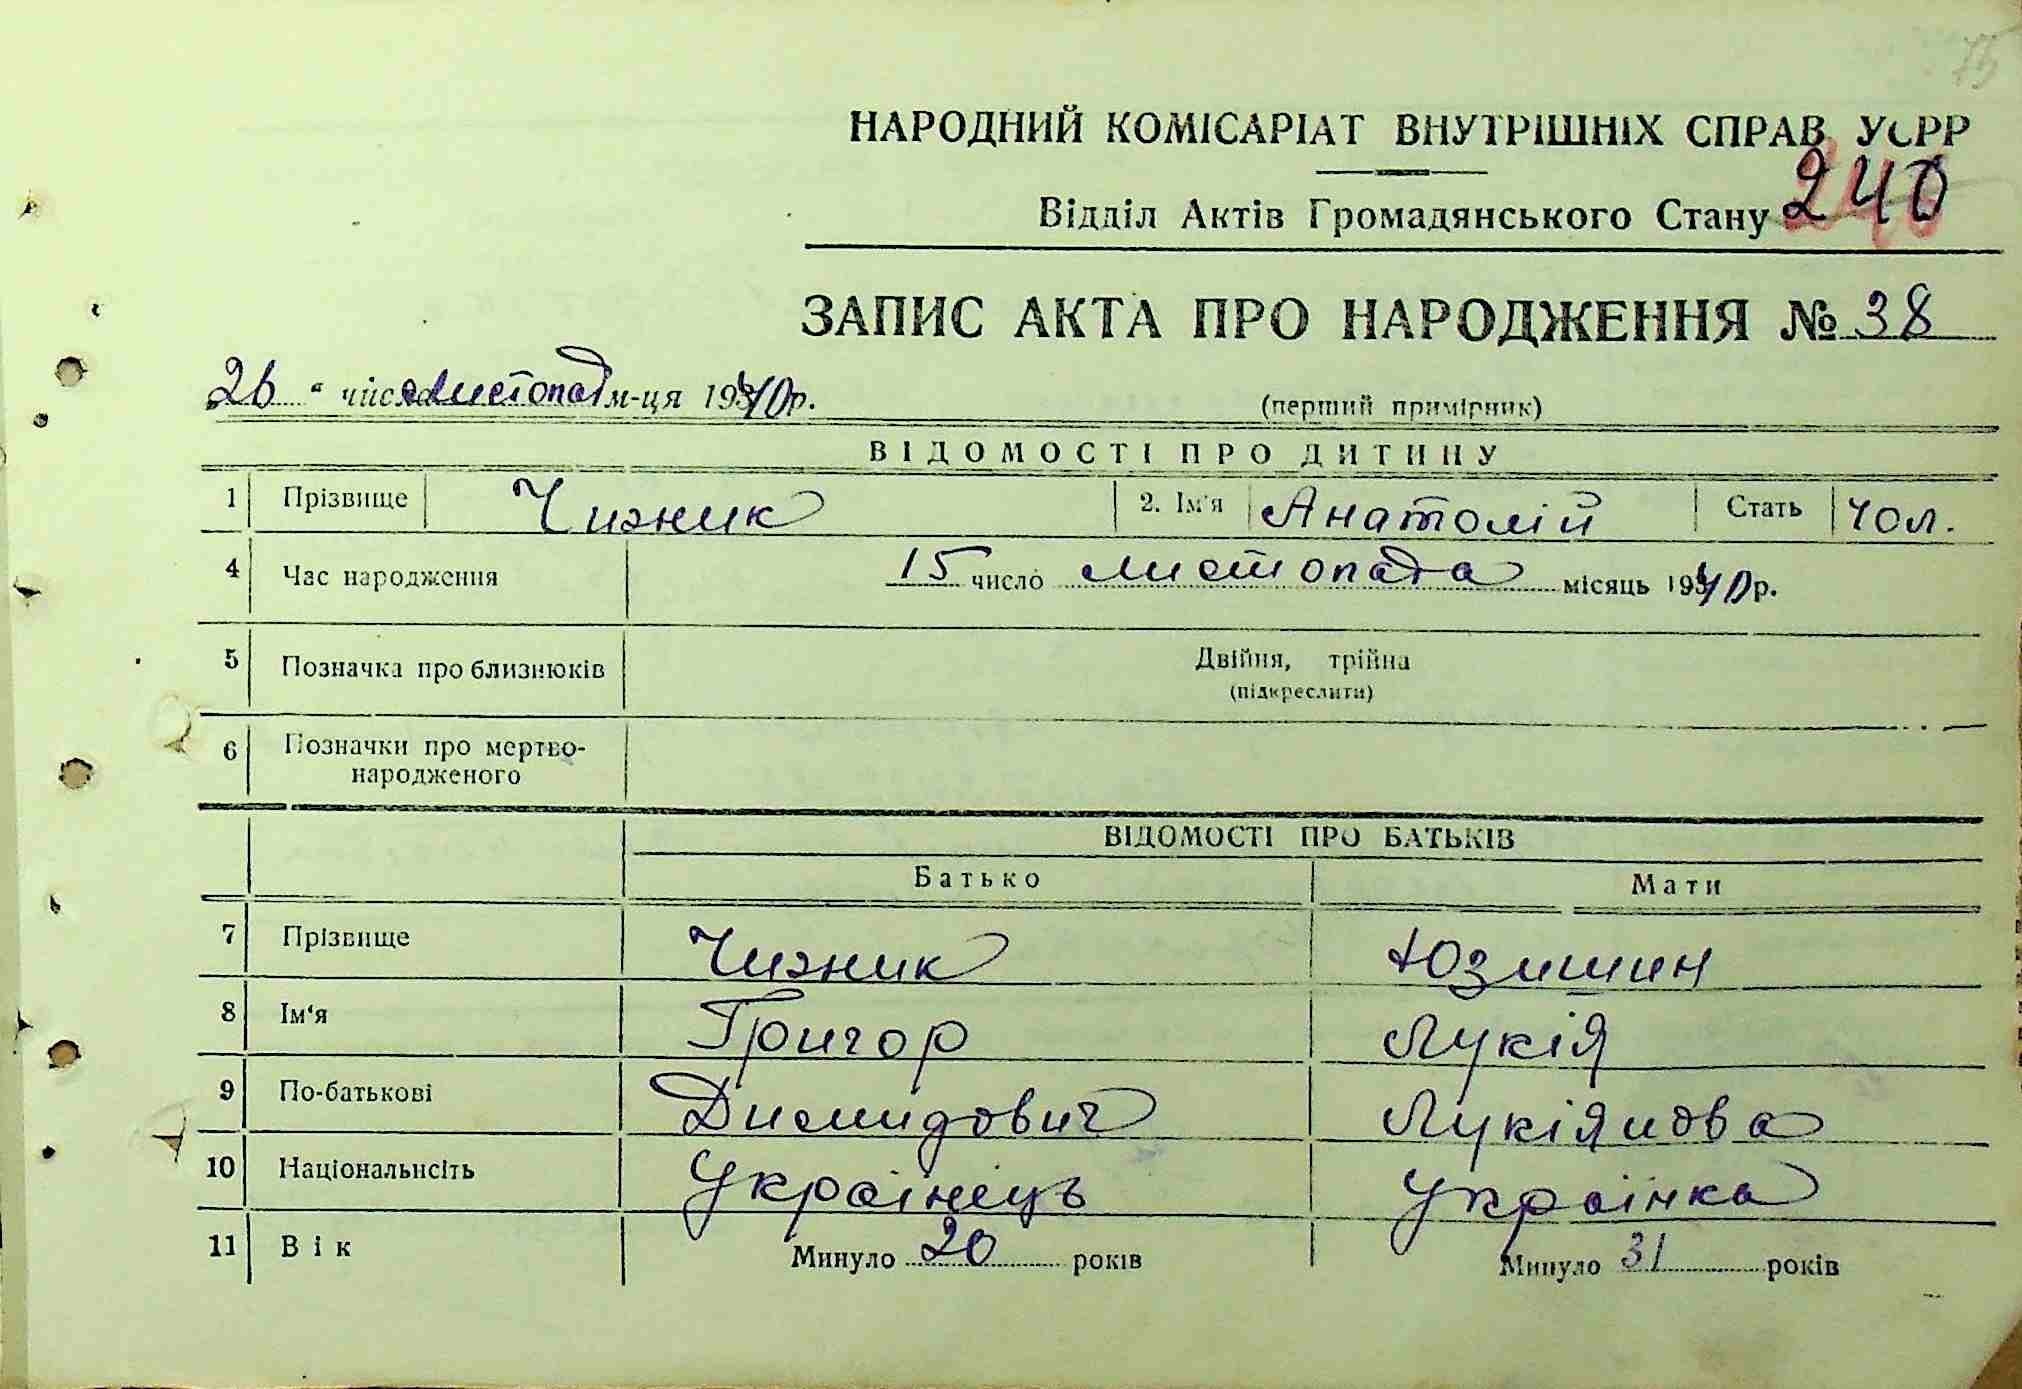 75
НАРОДНИЙ КОМІСАРІАТ ВНУТРІШНІХ СПРАВ УСРР
Відділ Актів Громадянського Стану 240
ЗАПИС АКТА ПРО НАРОДЖЕННЯ № 38
„26 “ числа листопад м-ця 1940 р.
(перший примірник)
ВІДОМОСТІ ПРО ДИТИНУ
1 Прізвище Чижник 2. Ім'я Анатолій Стать чол.
4 Час народження 15 число листопада місяць 1940 р.
5 Позначка про близнюків Двійня, трійна
(підкреслити)
6 Позначки про мертво-
народженого
ВІДОМОСТІ ПРО БАТЬКІВ
Батько Мати
7 Прізвище Чижник Юзишин
8 Ім'я Григор Лукія
9 По-батькові Димидович Лукіянова
10 Національність Українець Українка
11 Вік Минуло 20 років Минуло 31 років